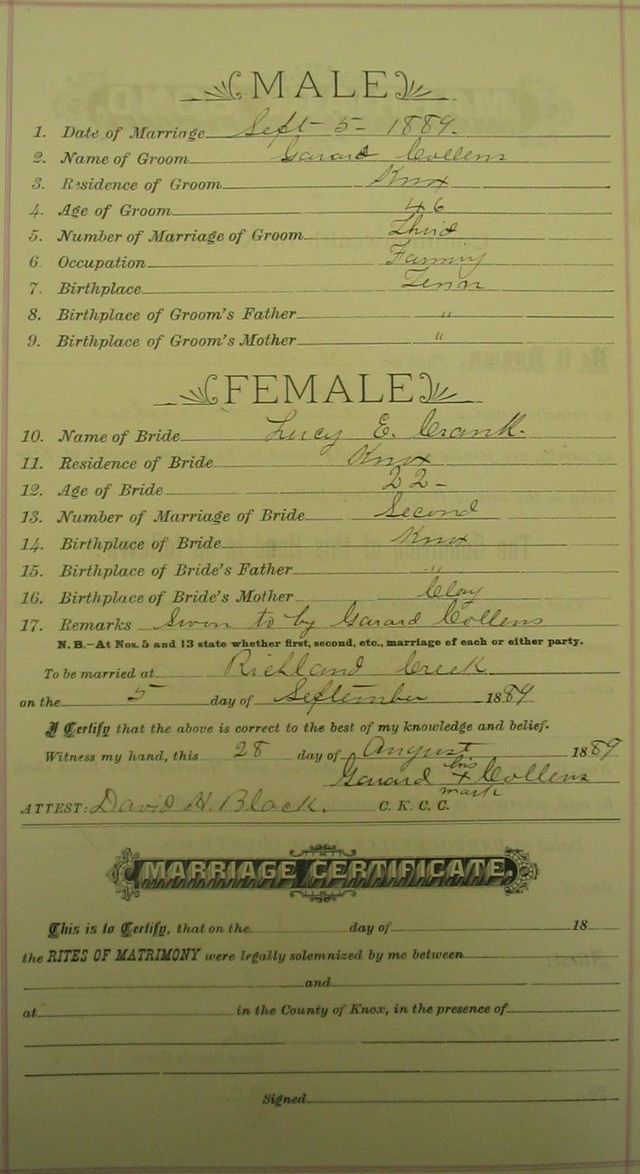 MALE
1. Date of Marriage Sept 5 - 1889.
2. Name of Groom Garard Collens
3. Residence of Groom Knox
4. Age of Groom 46
5. Number of Marriage of Groom Third
6. Occupation Farming
7. Birthplace Tenn
8. Birthplace of Groom's Father "
9. Birthplace of Groom's Mother "
FEMALE
10. Name of Bride Lucy E. Crank.
11. Residence of Bride Knox
12. Age of Bride 22 -
13. Number of Marriage of Bride Second
14. Birthplace of Bride Knox
15. Birthplace of Bride's Father "
16. Birthplace of Bride's Mother Clay
17. Remarks Swon to by Garard Collens
N. B.—At Nos. 5 and 13 state whether first, second, etc., marriage of each or either party.
To be married at Richland Creek
on the 5 day of September 1889
I Certify that the above is correct to the best of my knowledge and belief.
Witness my hand, this 28 day of August 1889
Garard his x mark Collens
ATTEST: David H. Black. C. K. C. C.
MARRIAGE CERTIFICATE.
This is to Certify, that on the day of 18
the RITES OF MATRIMONY were legally solemnized by me between
and
at in the County of Knox, in the presence of
Signed